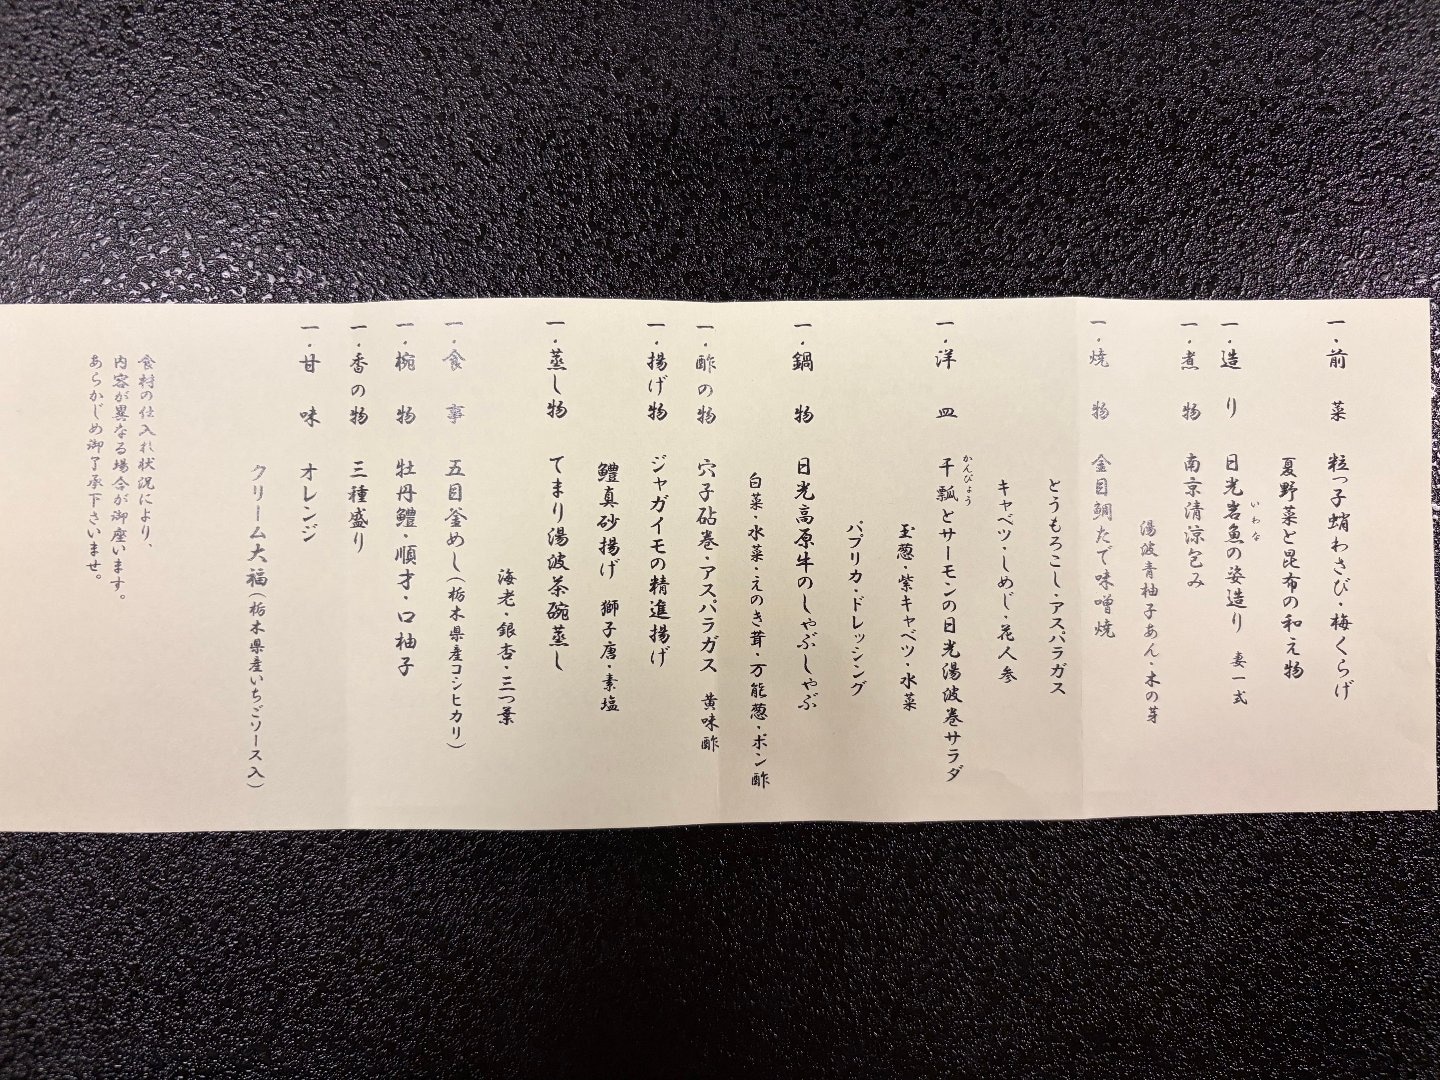 一.前菜 粒っ子蛸わさび・梅くらげ
夏野菜と昆布の和え物
一.造り 日光岩魚の姿造り 妻一式
いわな
一.煮物 南京清涼包み
湯波青柚子あん・木の芽
一.焼物 金目鯛たで味噌焼
とうもろこし・アスパラガス
キャベツ・しめじ・花人参
一.洋皿 干瓢とサーモンの日光湯波巻サラダ
かんぴょう
玉葱・紫キャベツ・水菜
パプリカ・ドレッシング
一.鍋物 日光高原牛のしゃぶしゃぶ
白菜・水菜・えのき茸・万能葱・ポン酢
一.酢の物 穴子砧巻・アスパラガス 黄味酢
一.揚げ物 ジャガイモの精進揚げ
鱧真砂揚げ 獅子唐・素塩
一.蒸し物 てまり湯波茶碗蒸し
海老・銀杏・三つ葉
一.食事 五目釜めし(栃木県産コシヒカリ)
一.椀物 牡丹鱧・順才・口柚子
一.香の物 三種盛り
一.甘味 オレンジ
クリーム大福(栃木県産いちごソース入)
食材の仕入れ状況により、
内容が異なる場合が御座います。
あらかじめ御了承下さいませ。